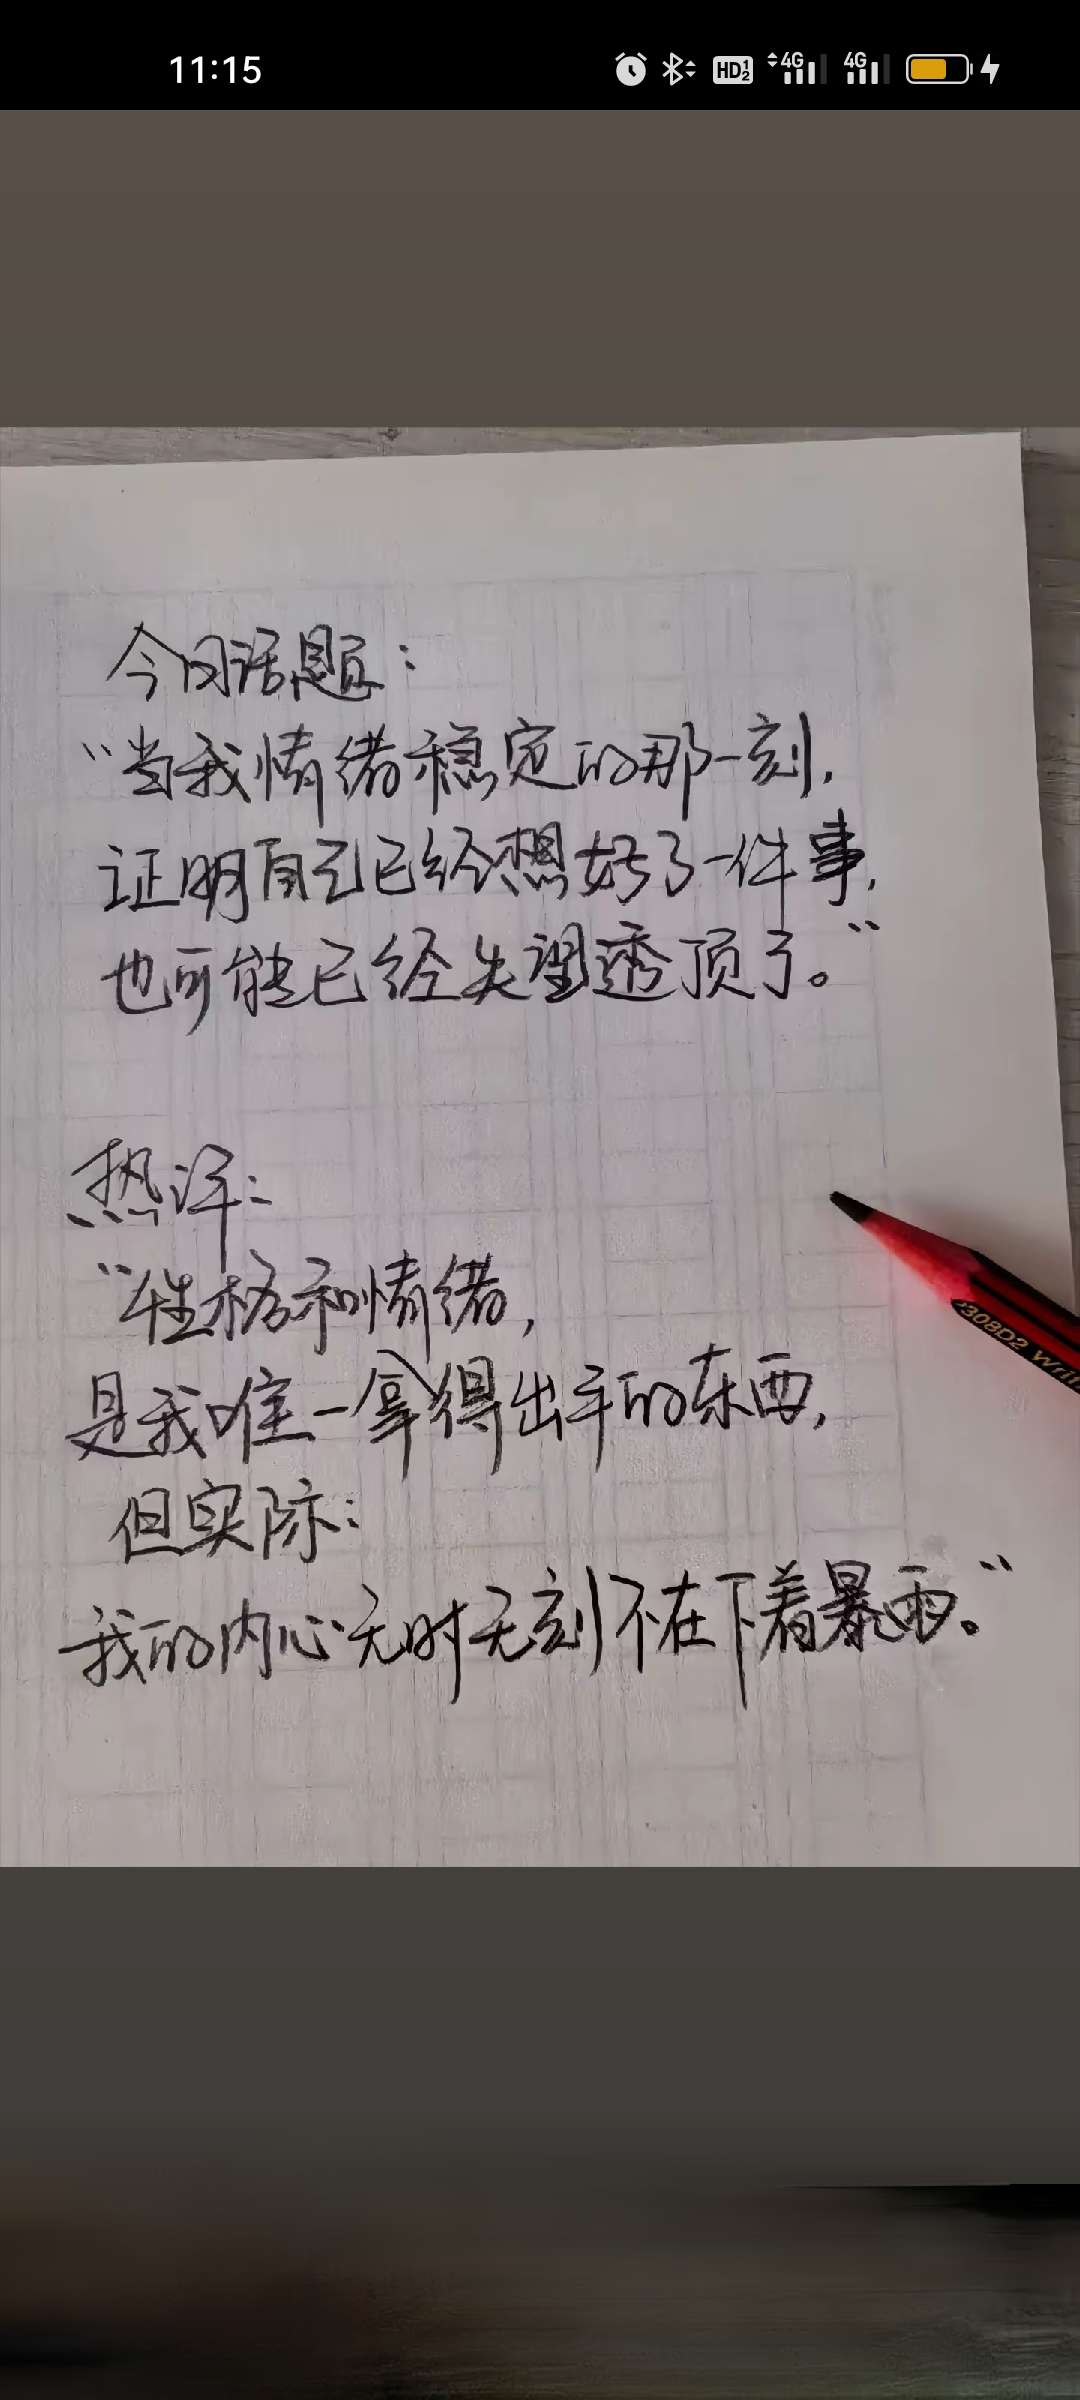 11:15
HD 1 2 4G 4G
今日话题：
“当我情绪稳定的那一刻，
证明自己已经想好了一件事，
也可能已经失望透顶了。”
热评：
“性格和情绪，
是我唯一拿得出手的东西，
但实际：
我的内心无时无刻不在下着暴雨。”
308D2 Writ